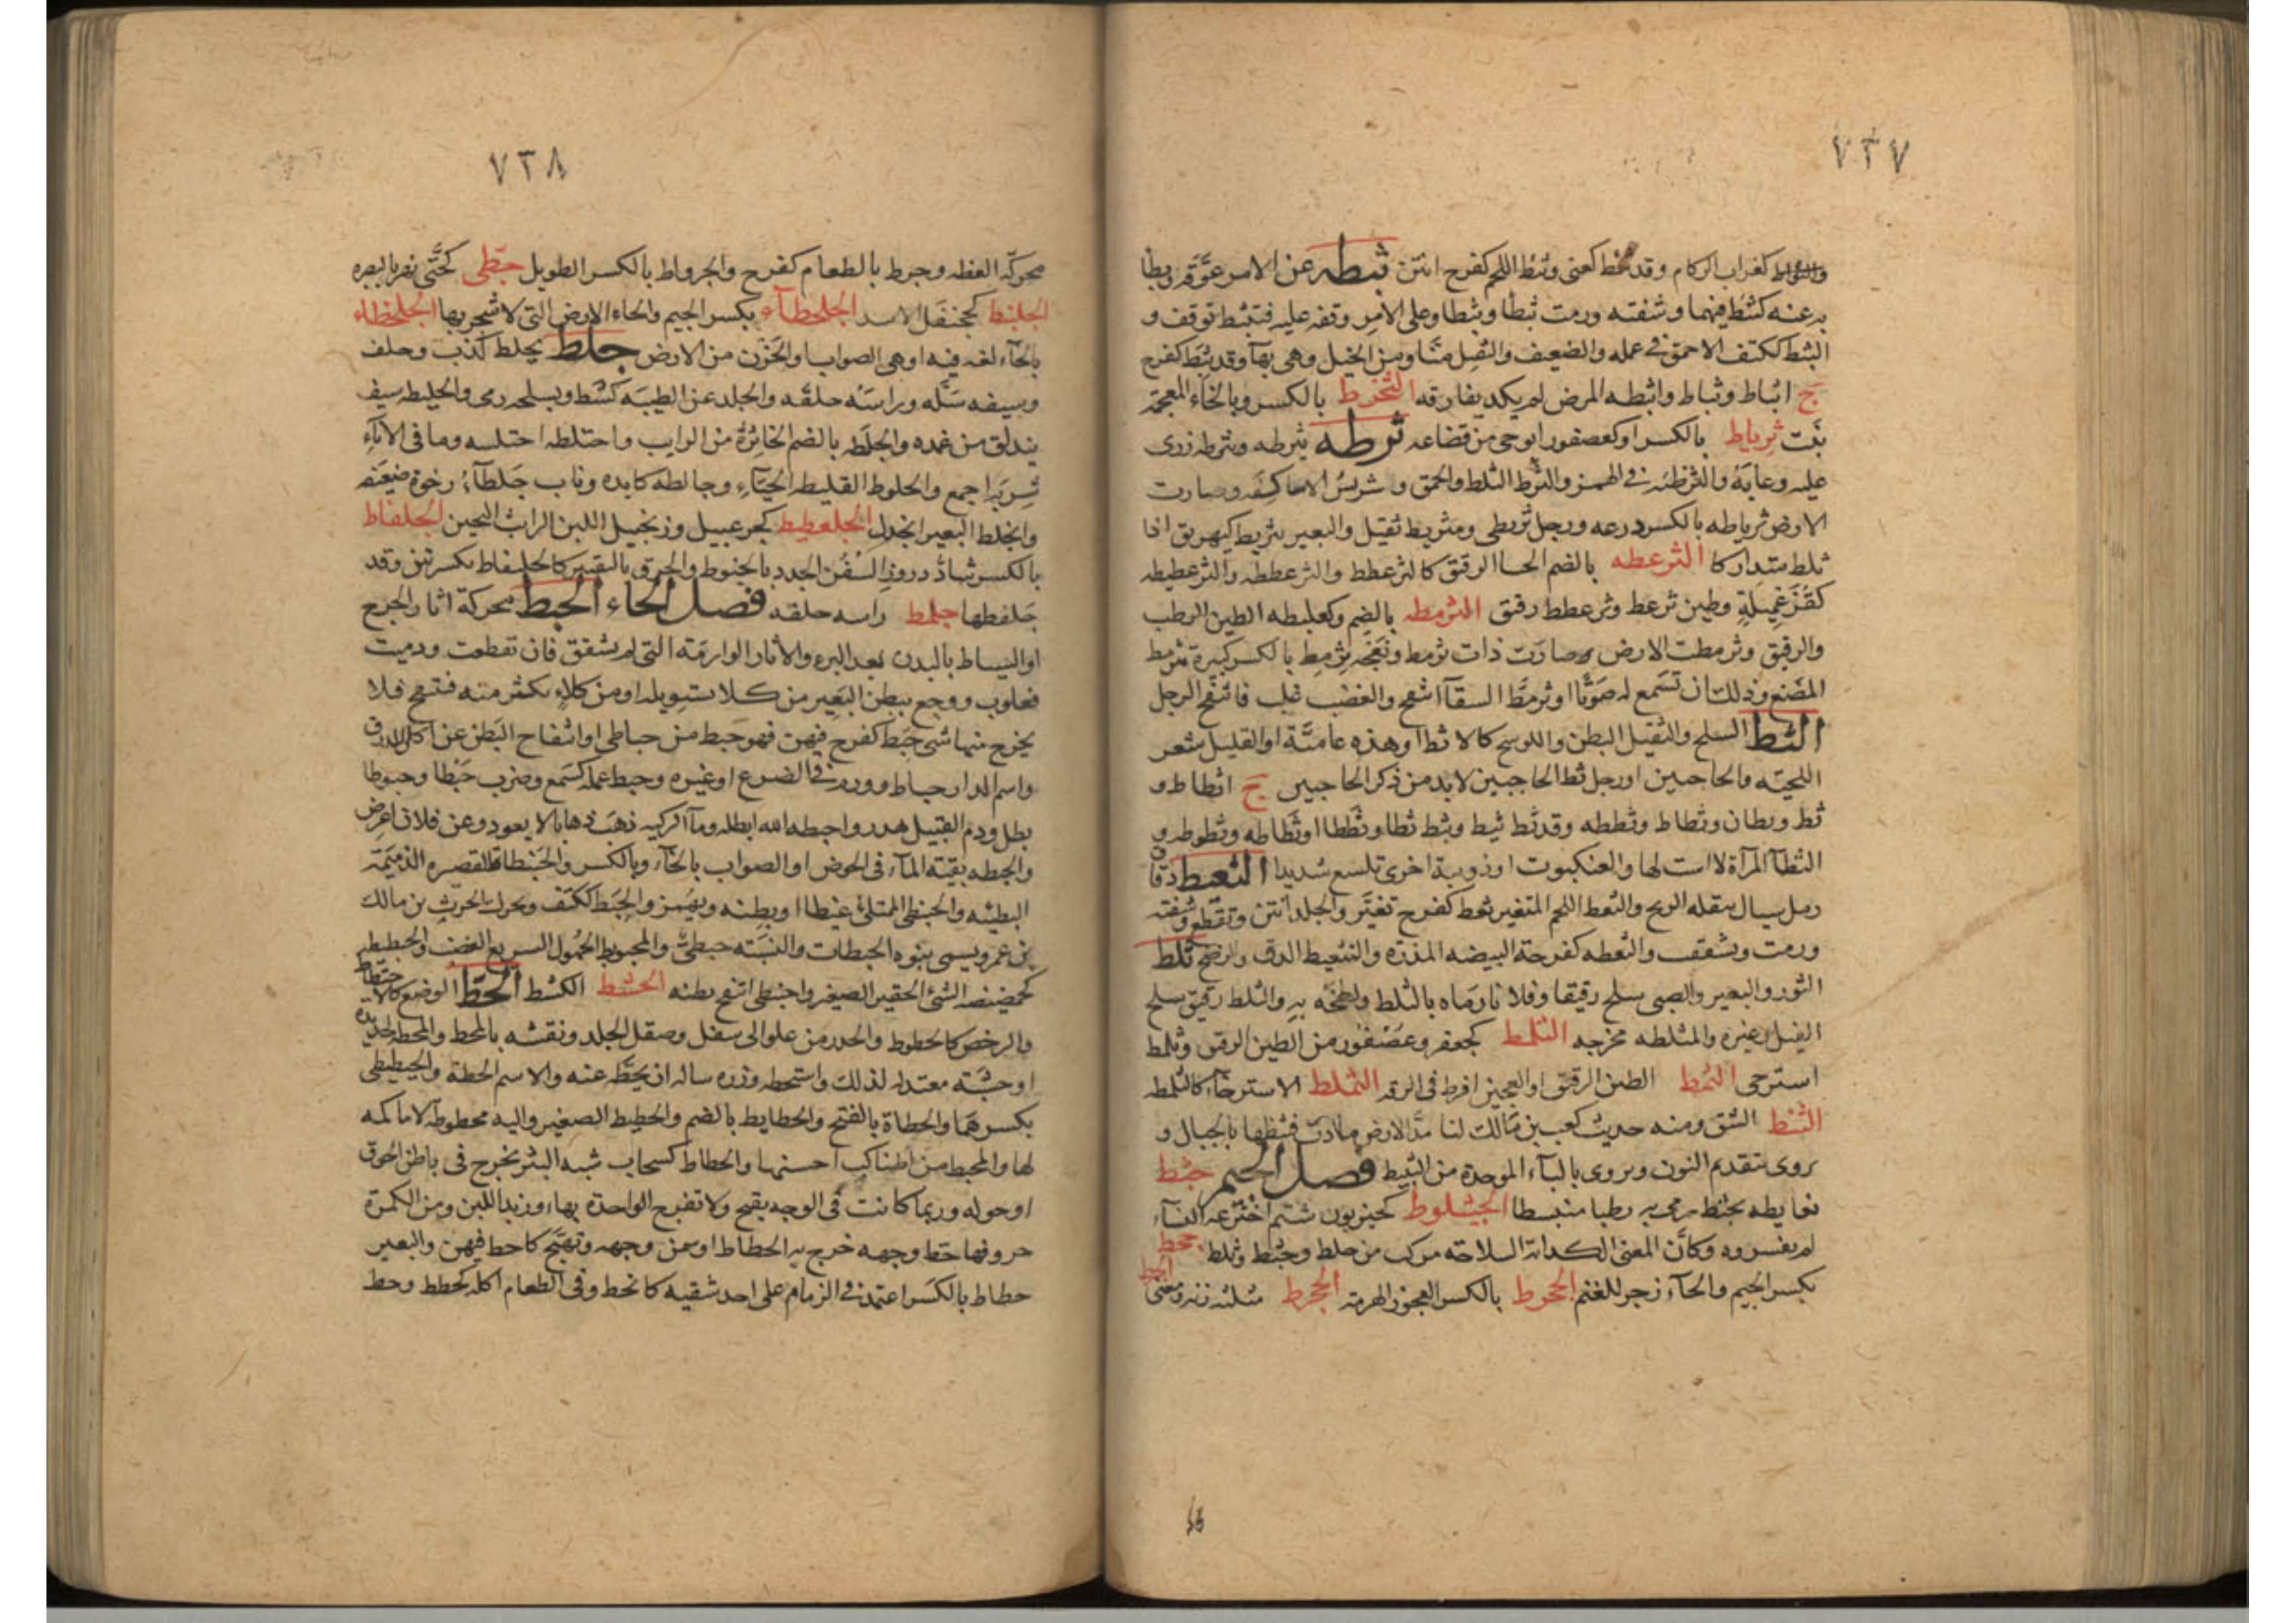 ٧٣٧
كغراب الزكام وقد كعنى وثئط اللحم كفرح انتن ثبطه عن الامر عوقه وبطأ
به عنه كثبط فيهما وشفته ورمت ثبطا وثبطا وعلى الامر وقفه عليه فتثبط توقف و
الثبط ككتف الاحمق في عمله والضعيف والثقيل منا ومن الخيل وهى بهآ وقد ثبط كفرح
ج اثباط وثباط واثبطه المرض لم يكد يفارقه الثخرط بالكسر وبالخآء المعجمة
نبت ثرباط بالكسر او كعصفور ابو حي من قضاعه ثرطه يثرطه ويثرطه زرى
عليه وعابه والثرطئه في الهمز والثرط الثلط والحمق و شريس الاساكفه وصارت
الارض ثرياطه بالكسر درعه ورجل ثرنطى ومثرنط ثقيل والبعير يثريط كيهريق اذا
ثلط متداركا الثرعطه بالضم الحسا الرقيق كالثرعطط والثرعططه والثرعطيطه
كقذعميلة وطين ثرعط وثرعطط رقيق الثرمطه بالضم وكعلبطه الطين الرطب
والرقيق وثرمطت الارض صارت ذات ثرمط ونعجه ثرمط بالكسر كبيرة ثرمط
المضغ وذلك ان تسمع له صوتا واثرمط السقآ انتفخ والغضب غلب فانتفخ الرجل
الثط السلح والثقيل البطن واللوسج كالاثط او هذه عامية او القليل شعر
اللحيته والحاجبين او رجل ثط الحاجبين لا بد من ذكر الحاجبين ج اثطاط و
ثط وثطان وثطاط وثططه وقد ثط ثيط ويثط ثطا وثططا وثطاطه وثطوطه و
الثطآ المرآة لا است لها والعنكبوت او دويبة اخرى تلسع شديدا الثعيط دقاق
رمل سيال تنقله الريح والثعط اللحم المتغير ثعط كفرح تغير والجلد انتن وتقطع وشفته
ورمت وتشققت والثعطه كفرحة البيضه المذره والتثعيط الدق والرضخ ثلط
الثور والبعير والصبى سلح رقيقا وفلانا رماه بالثلط ولطخه به والثلط رقيق سلح
الفيل وغيره والمثلطه مخرجه الثلمط كجعفر وعصفور من الطين الرقيق وثلمط
استرخى الثمط الطين الرقيق او العجين افرط في الرقه الثملط الاسترخآء كالثلمطه
الثنط الشق ومنه حديث كعب بن مالك لما مد الارض مادت فثنطها بالجبال و
يروى بتقديم النون ويروى بالبآء الموحدة من التثبيط فصل الجيم جثط
بغايطه يجثط رمى به رطبا منبسطا الجثلوط كحيزبون شتم اخترعه النسآء
لم يفسروه وكان المعنى الكذابة السلاحه مركب من جلط وجثط وثلط جحط
بكسر الجيم والحآء زجر للغنم الجحرط بالكسر العجوز الهرمة الجخرط مثلثه زنه ومعنى الجط
٧٣٨
محركة الغصه وجرط بالطعام كفرح والجرواط بالكسر الطويل جطى كحتى نهر بالبصره
الجلبط كجحنفل الاسد الجلحطآء بكسر الجيم والحاء الارض التى لا شجر بها الجلخطاء
بالخآء لغه فيه او هى الصواب والحزن من الارض جلط يجلط كذب وحلف
وسيفه سله وراسه حلقه والجلد عن الظبيه كشط وبسلحه رمى والجليطه سيف
يندلق من غمده والجلطه بالضم الخاثرة من الرايب واجتلطه اختلسه وما في الانآء
شربه اجمع والجلوط القليله الحيآء وجالطه كابده وناب جلطآء رخوة ضعيفه
وانجلط البعير انجدل الجلعطيط كجرعبيل وزنجبيل اللبن الرائب الثخين الجلفاط
بالكسر شاد دروز السفن الجدد بالخيوط والخرق بالتقيير كالجلنفاط بكسرتين وقد
جلفطها جلمط راسه حلقه فصل الحاء الحبط محركة اثار الجرح
او السياط بالبدن بعد البرء والاثار الوارمة التى لم تشقق فان تقطعت ودميت
فعلوب ووجع ببطن البعير من كلا يستوبله او من كلاء يكثر منه فتنتفخ فلا
يخرج منها شى حبط كفرح فيهن فهو حبط من حباطى او انتفاخ البطن عن اكل الذرق
واسم الدا الحباط وورم في الضرع او غيره وحبط عمله كسمع وضرب حبطا وحبوطا
بطل ودم القتيل هدر واحبطه الله ابطله ومآ الركيه ذهب ذهابا لا يعود وعن فلان اعرض
والحبطه بقية المآء في الحوض او الصواب بالخآء وبالكسر والحبنطاة القصيره الذميمة
البطينه والحبنطى الممتلئ غيظا او بطنه ويهمز والحبط ككتف ويحرك الحرث بن مالك
بن عمرو ويسمى بنوه الحبطات والنسبة حبطى والمحبوط الجهول السريع الغضب والحبطيطه
كحميضه الشئ الحقير الصغير واحبنطى انتفخ بطنه الحثط الكشط الحط الوضع كالاحتطاط
والرخص كالحطوط والحدر من علو الى سفل وصقل الجلد ونقشه بالمحط والمحطه لحديدة
او خشبة معتدله لذلك واستحطه وزره ساله ان يحطه عنه والاسم الحطة والحطيطى
بكسرهما والحطاة بالفتح والحطايط بالضم والحطيط الصغير واليه محطوطه لا ماكمه
لها والمحيط من المناكب احسنها والحطاط كسحاب شبه البثر يخرج في باطن الحوق
او حوله وربما كانت في الوجه يقيح ولا تقرح الواحدة بهاء وزبد اللبن ومن الكمرة
حروفها حط وجهه خرج به الحطاط او سمن وجهه وتهيج كاحط فيهن والبعير
حطاط بالكسر اعتمد في الزمام على احد شقيه كانحط وفي الطعام اكله كحطط وحط